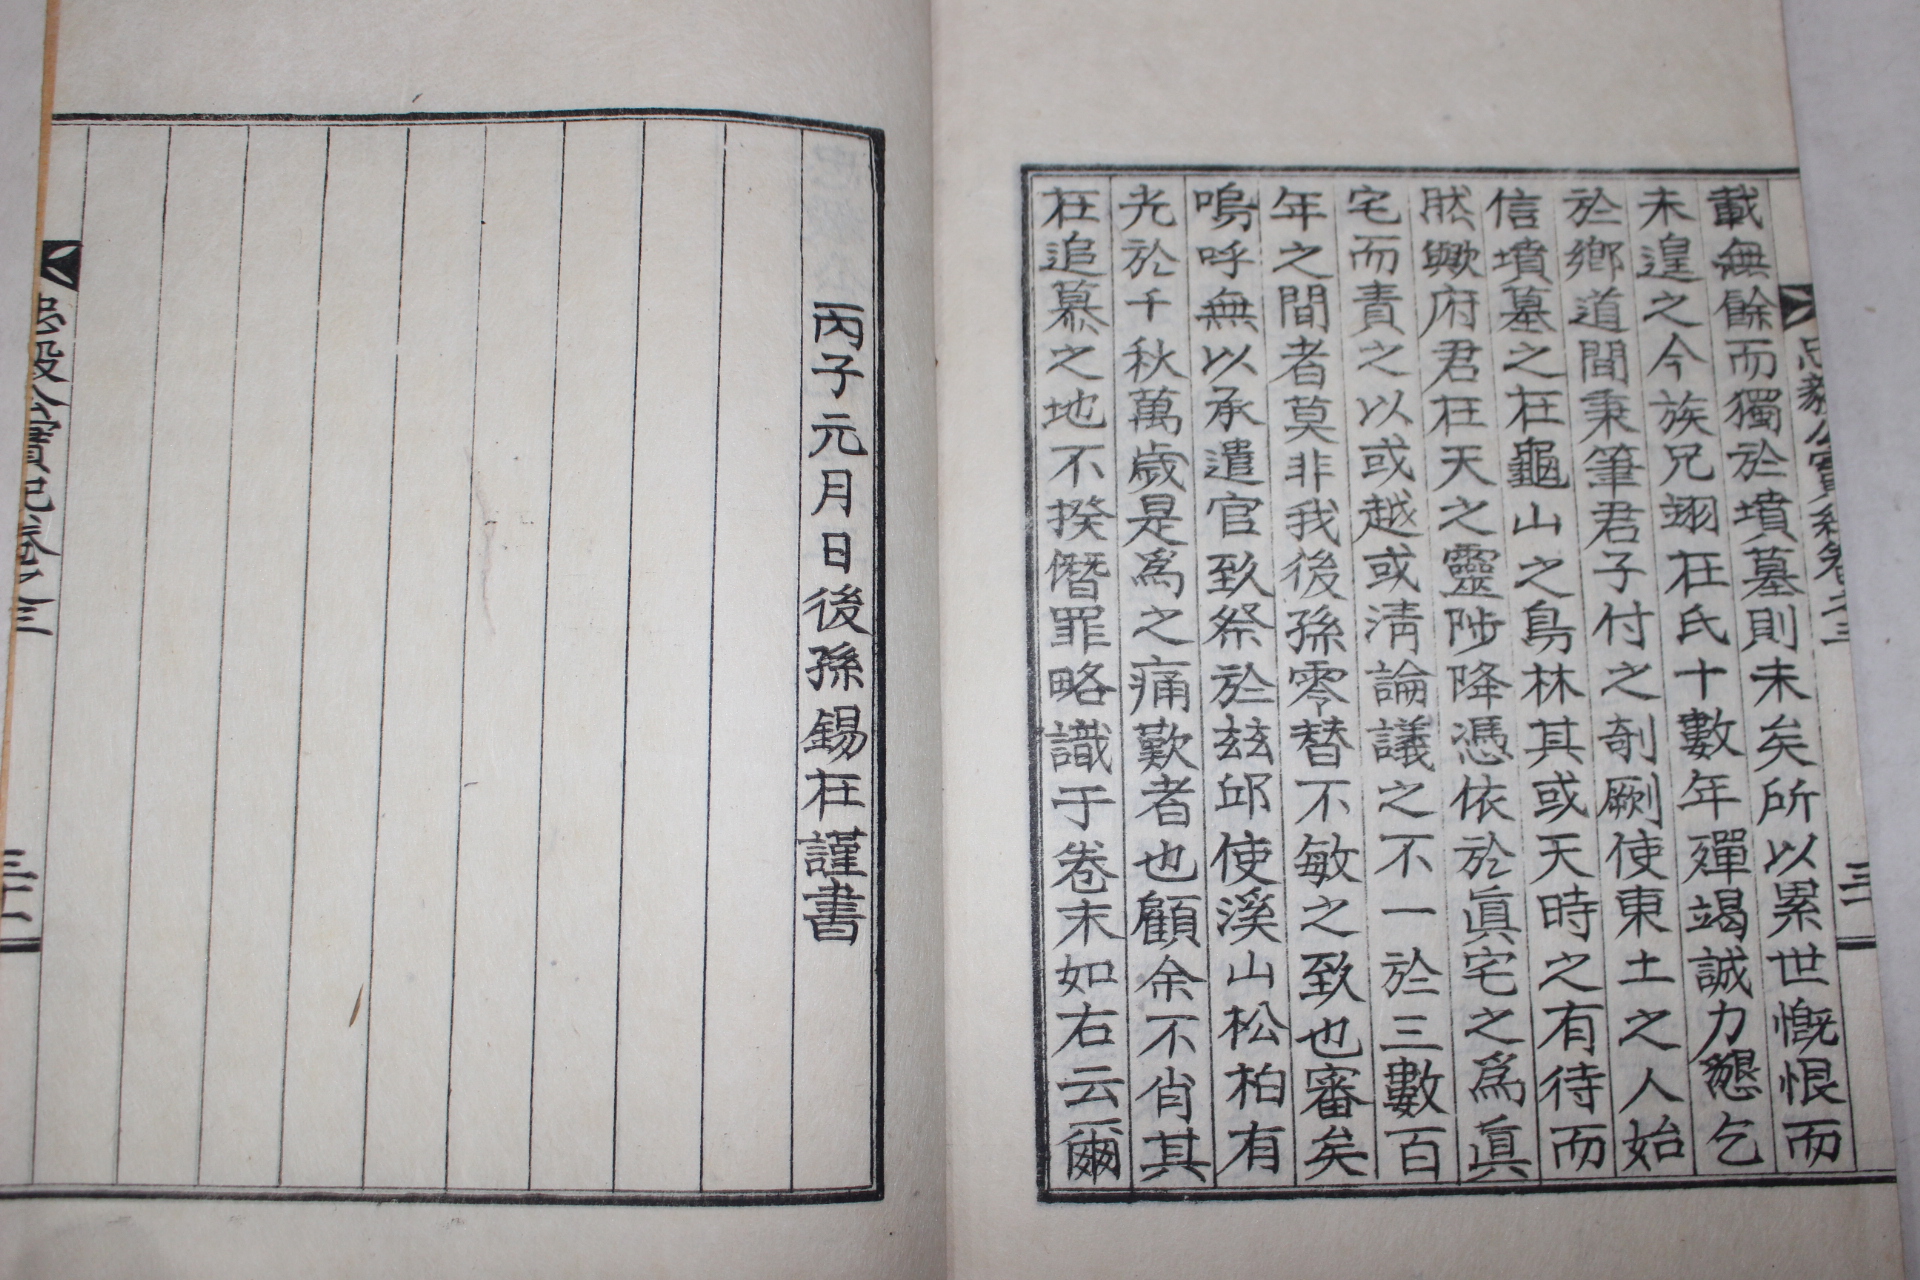 載無餘而獨於墳墓則未矣所以累世慨恨而
未遑之今族兄翊在氏十數年殫竭誠力懇乞
於鄉道間秉筆君子付之剞劂使東土之人始
信墳墓之在龜山之鳥林其或天時之有待而
然歟府君在天之靈陟降憑依於眞宅之爲眞
宅而責之以或越或淸論議之不一於三數百
年之間者莫非我後孫零替不敏之致也審矣
嗚呼無以承遣官致祭於玆邱使溪山松柏有
光於千秋萬歲是爲之痛歎者也顧余不肖其
在追慕之地不揆僭罪略識于卷末如右云爾
忠毅公實紀卷之三
三十
丙子元月日後孫錫在謹書
忠毅公實紀卷之三
三十一